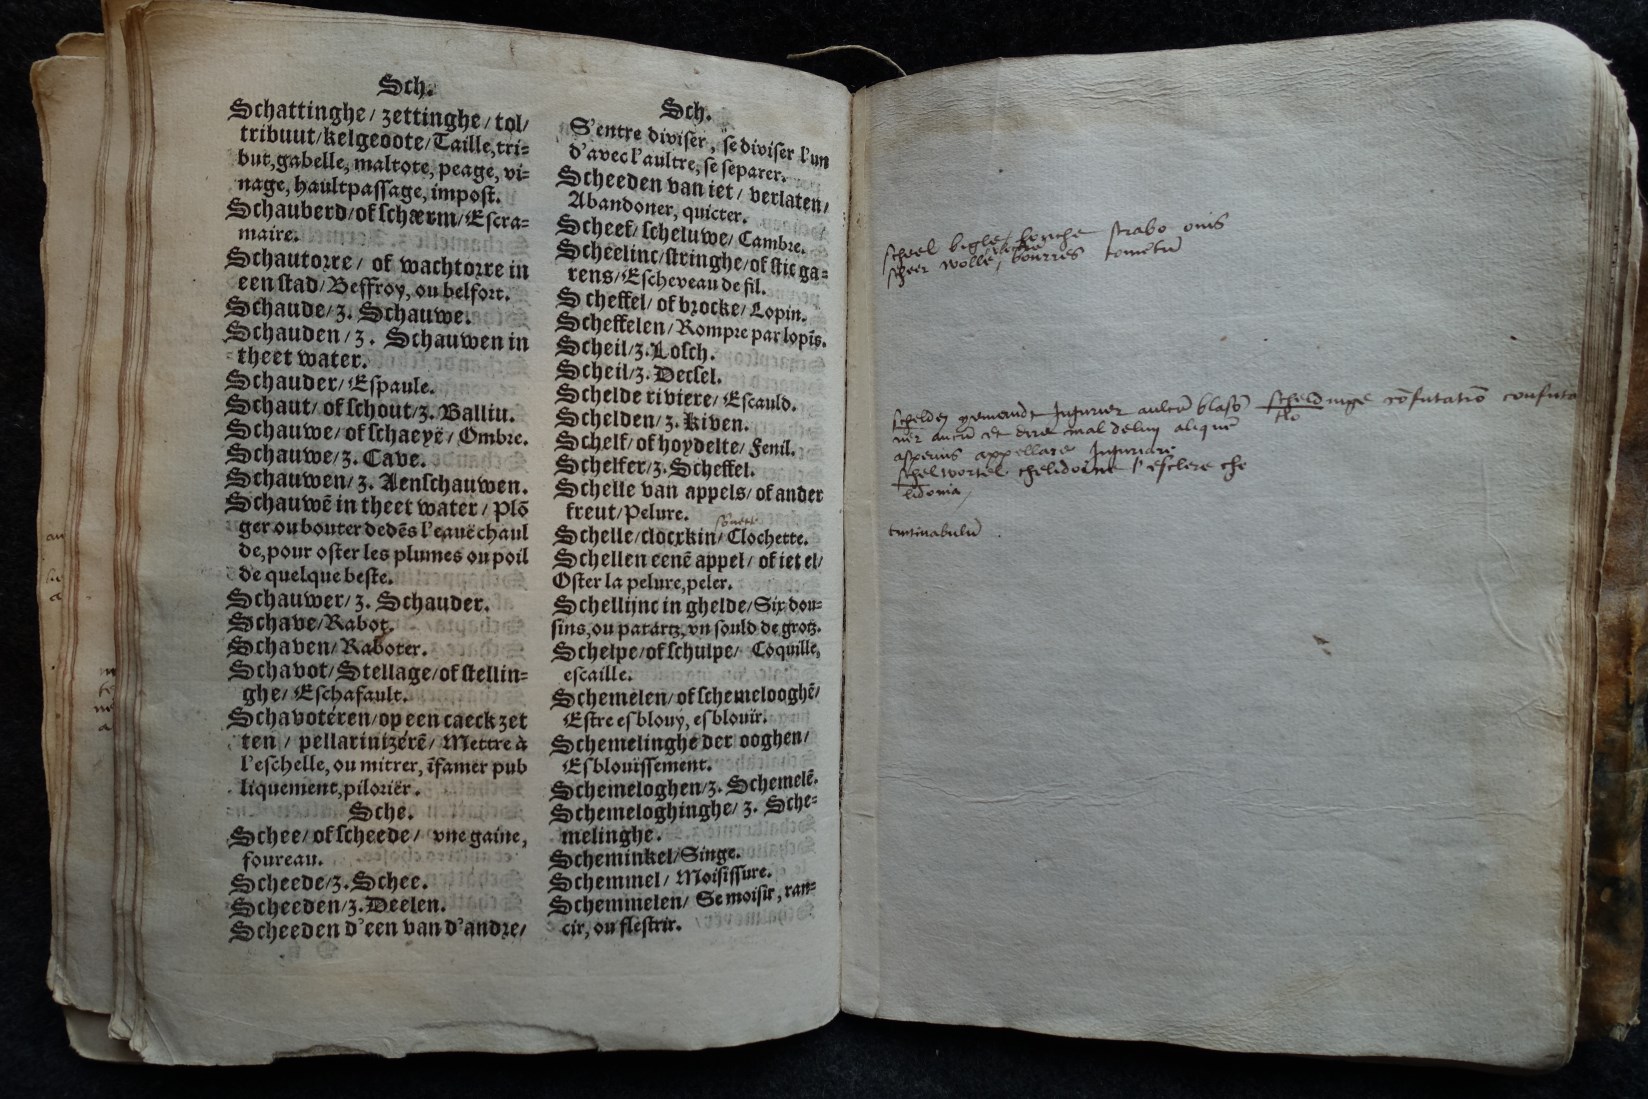 Sch.
Schattinghe/ zettinghe/ tol/
tribuut/kelgeoote/Taille,tri=
but,gabelle, maltote, peage, vi=
nage, haultpassage, impost.
Schauberd/of schærm/Escra=
maire.
Schautorre/ of wachtorre in
een stad/Beffroy, ou belfort.
Schaude/z. Schauwe.
Schauden/z. Schauwen in
theet water.
Schauder/Espaule.
Schaut/of schout/z. Balliu.
Schauwe/of schaeyë/Ombre.
Schauwe/z. Cave.
Schauwen/z. Aenschauwen.
Schauwē in theet water/Plō
ger ou bouter dedēs l'eauë chaul
de,pour oster les plumes ou poil
de quelque beste.
Schauwer/z. Schauder.
Schave/Rabot.
Schaven/Raboter.
Schavot/Stellage/of stellin=
ghe/Eschafault.
Schavotéren/op een caeck zet
ten/pellarinizérē/Mettre à
l'eschelle,ou mitrer, īfamer pub
liquement,pilorier.
Sche.
Schee/of scheede/ vne gaine,
foureau.
Scheede/z.Schee.
Scheeden/z.Deelen.
Scheeden d'een van d'andre/
Sch.
S'entre diviser, se diviser l'un
d'avec l'aultre, se separer.
Scheeden van iet/ verlaten/
Abandoner, quicter.
Scheef/scheluwe/Cambre.
Scheelinc/stringhe/of stic ga=
rens/Escheveau de fil.
Scheffel/of brocke/Lopin.
Scheffelen/Rompre par lopīs.
Scheil/z.Losch.
Scheil/z.Decsel.
Schelde riviere/Escauld.
Schelden/z.Kiven.
Schelf/of hoydelte/Fenil.
Schelfer/z.Scheffel.
Schelle van appels/of ander
freut/Pelure.
sonette
Schelle/clocxkin/Clochette.
Schellen eenē appel/of iet el/
Oster la pelure,peler.
Schellijnc in ghelde/Six dou=
sins,ou patartz,vn sould de grotz.
Schelpe/of schulpe/ Coquille,
escaille.
Schemelen/of schemelooghē/
Estre esblouy, esblouïr.
Schemelinghe der ooghen/
Esblouïssement.
Schemeloghen/z. Schemelē.
Schemeloghinghe/z. Sche=
melinghe.
Scheminkel/Singe.
Schemmel/Moisissure.
Schemmelen/Se moisir, ran=
cir, ou flestrir.
scheel bigle/ strabo onis
scheer wolle/ bourres tomētū
schelden yemandt Injurier aulcū blasō
et dire mal deluy aliquē
asperius appellare Injuriari
scheldinge cōfutatiō confuta
tio
schelwortel chelidoine l'esclere che
lidonia/
tintinabulū